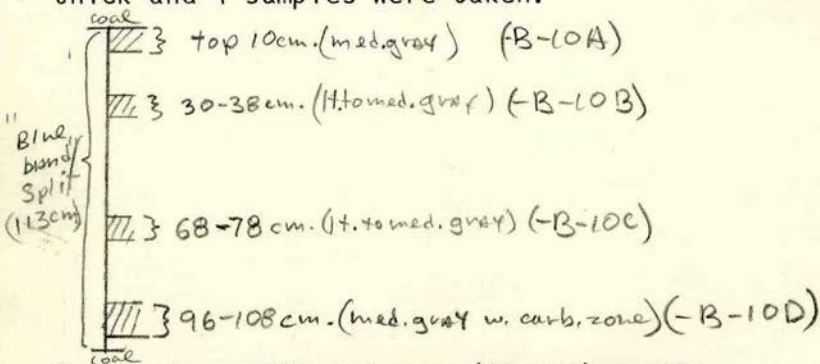 thick and 4 samples were taken.
coal
top 10cm.(med.gray) (-B-10A)
30-38 cm.(lt.to med.gray) (-B-10B)
"Blue
band"
Split
(113cm)
68-78 cm.(lt.to med.gray) (-B-10C)
96-108cm.(med.gray w. carb.zone)(-B-10D)
coal